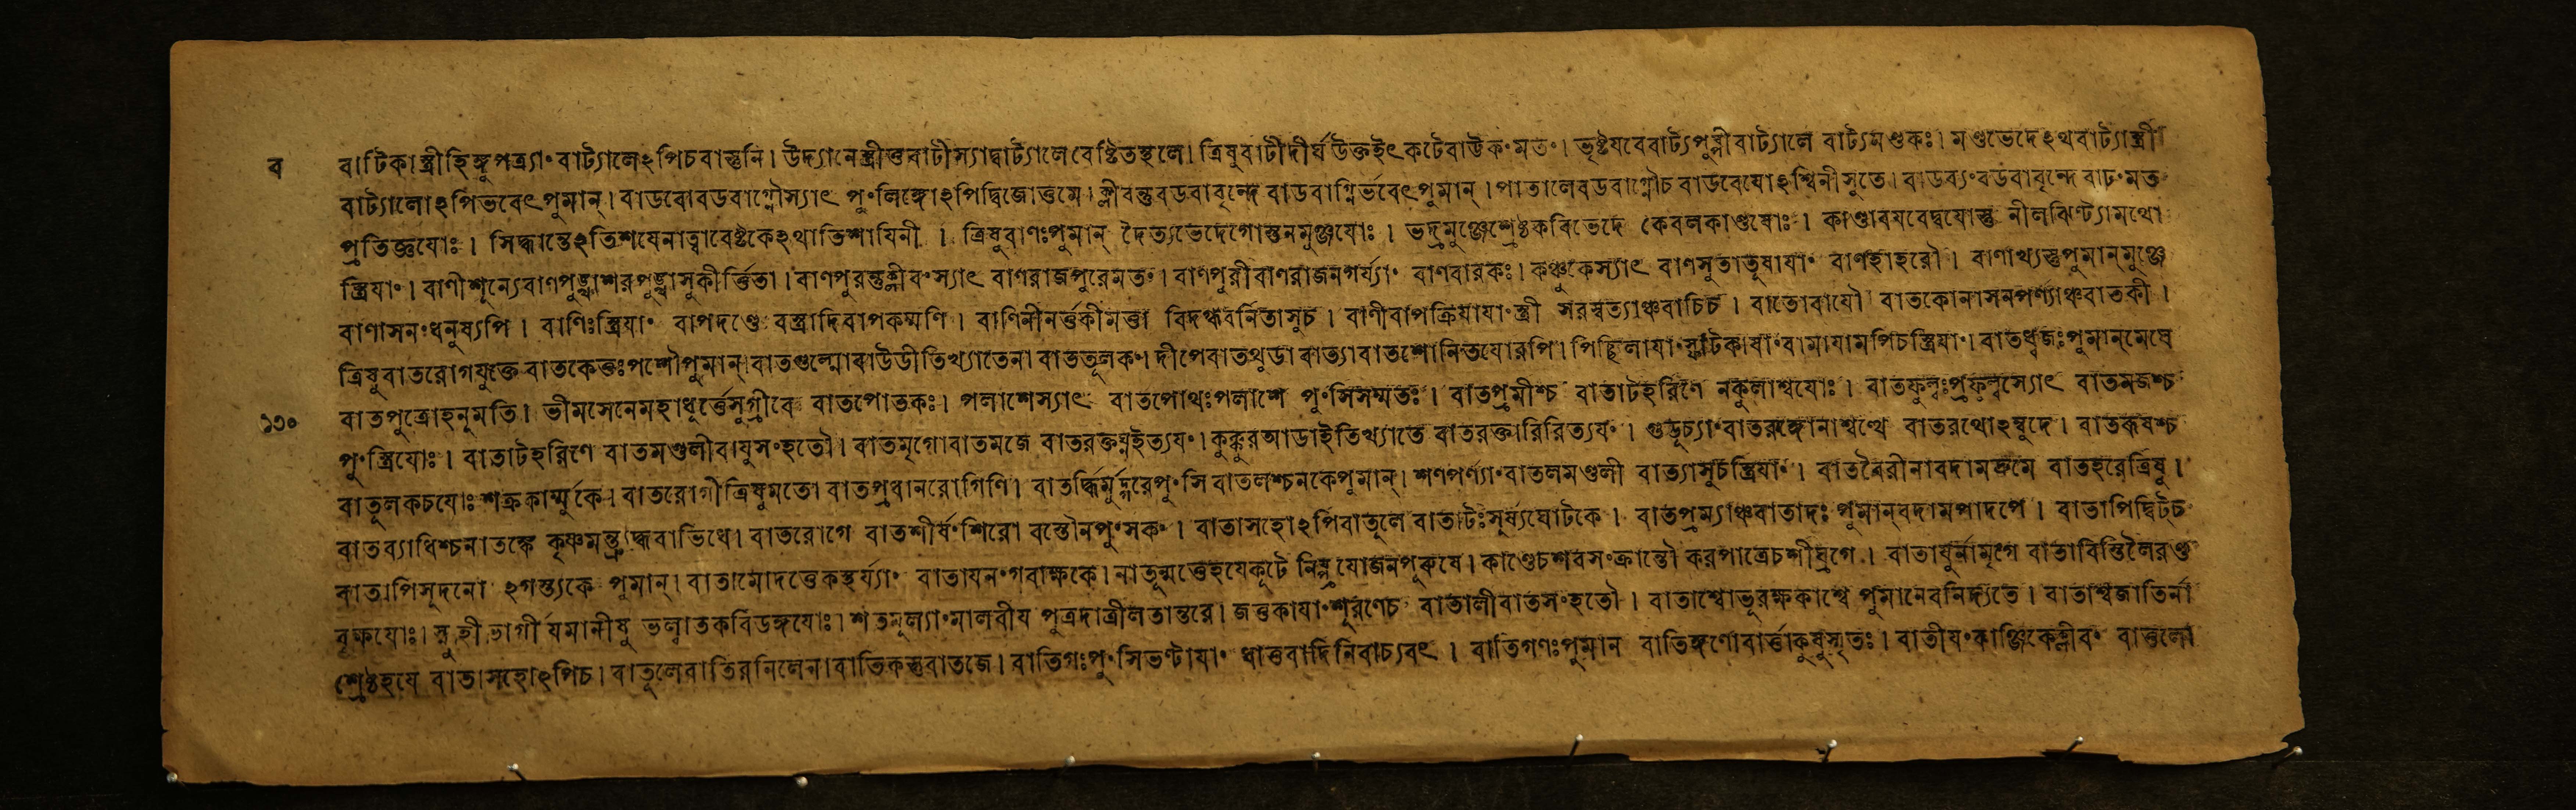 ব
বাটিকাস্ত্রীহিঙ্গুপত্র্যাং বাট্যালেঽপিচবাস্তুনি। উদ্যানেস্ত্রীত্তবাটীস্যাদ্বাট্যালেবেষ্টিতস্থলে। ত্রিষুবাটীদীর্ঘউক্তইৎকটেবাত্তকংমতং। ভৃষ্টযবেবাট্যপুষ্পীবাট্যালে বাট্যমণ্ডকঃ। মণ্ডভেদেঽথবাট্যাস্ত্রী
বাট্যালোঽপিভবেৎপুমান্। বাডবোবডবাগ্নৌস্যাৎ পুংলিঙ্গোঽপিদ্বিজোত্তমে। ক্লীবন্তুবডবাবৃন্দে বাডবাগ্নির্ভবেৎপুমান্। পাতালেবডবাগ্নৌচ বাডবেযোঽশ্বিনীসুতে। বাডব্যংবডবাবৃন্দে বাঢংমত
প্রতিজ্ঞযোঃ। সিদ্ধান্তেঽতিশযেনাত্বাবেষ্টকেঽথাতিশাযিনী। ত্রিষুবাণঃপুমান্ দৈত্যভেদেগোস্তনমুঞ্জযোঃ। ভদ্রমুঞ্জেশ্রেষ্ঠকবিভেদে কেবলকাণ্ডযোঃ। কাণ্ডাবযবেদ্বযোস্তু নীলঝিণ্ট্যামথো
স্ত্রিযাং। বাণীশূন্যেবাণপুঙ্খাশরপুঙ্খাসুকীর্ত্তিতা। বাণপুরন্তুক্লীবংস্যাৎ বাণরাজপুরেমতং। বাণপুরীবাণরাজনগর্য্যাং বাণবারকঃ। কঞ্চুকেস্যাৎ বাণসুতাতূষাযাং বাণহাহরৌ। বাণাখ্যস্তুপুমান্‌মুঞ্জে
বাণাসনংধনুষ্যপি। বাণিঃস্ত্রিযাং বাপদণ্ডে বস্ত্রাদিবাপকর্ম্মণি। বাণিনীনর্ত্তকীমত্তা বিদগ্ধবনিতাসুচ। বাণীবাপক্রিযাযাংস্ত্রী সরস্বত্যাঞ্চবাচিচ। বাতোবাযৌ বাতকোনাসনপর্ণ্যাঞ্চবাতকী।
ত্রিষুবাতরোগযুক্তে বাতকেতুঃপশৌপুমান্। বাতগুল্মোবাউডীতিখ্যাতেনা বাততূলকং। দীপেবাতথুডা বাত্যাবাতশোনিতযোরপি। পিচ্ছিলাযাংস্ফাটিকাযাংবামাযামপিচস্ত্রিযাং। বাতধ্বজঃপুমান্‌মেঘে
১৩০
বাতপুত্রোহনুমতি। ভীমসেনেমহাধূর্ত্তেসুগ্রীবে বাতপোতকঃ। পলাশেস্যাৎ বাতপোথঃপলাশে পুংসিসম্মতঃ। বাতপ্রমীশ্চ বাতাটহরিণে নকুলাশ্বযোঃ। বাতফুল্লঃপ্রফুল্লস্যোৎ বাতমজশ্চ
পুংস্ত্রিযোঃ। বাতাটহরিণে বাতমণ্ডলীবাযুসংহতৌ। বাতমৃগোবাতমজে বাতরক্তঘ্নইত্যযং। কুক্কুরআডাইতিখ্যাতে বাতরক্তারিরিত্যযং। গুডূচ্যাংবাতরঙ্গোনাশ্বত্থে বাতরথোঽম্বুদে। বাতরূষশ্চ
বাতূলকচযোঃশক্রকার্ম্মুকে। বাতরোগীত্রিষুমতো বাতপ্রধানরোগিণি। বাতর্দ্ধির্মুদ্গরেপুংসি বাতলশ্চনকেপুমান্। শণপর্ণ্যাংবাতলমণ্ডলী বাত্যাসুচস্ত্রিযাং। বাতবৈরীনাবদামদ্রুমে বাতহরেত্রিষু।
বাতব্যাধিশ্চনাতঙ্কে কৃষ্ণমন্ত্র্যুদ্ধবাভিধে। বাতরোগে বাতশীর্ষংশিরো বস্তৌনপুংসকং। বাতাসহোঽপিবাতূলে বাতাটঃসূর্য্যঘোটকে। বাতপ্রম্যাঞ্চবাতাদঃ পুমান্‌বদামপাদপে। বাতাপিদ্বিট্‌চ
বাতাপিসূদনো ঽগস্ত্যকে পুমান্। বাতামোদত্তেকস্তূর্য্যাং বাতাযনংগবাক্ষকে। নাতূন্মত্তেহযেকূটে নিষ্প্রযোজনপুরুষে। কাণ্ডেচশবসংক্রান্তৌ করপাত্রেচশীঘ্রগে। বাতাযুর্নামৃগে বাতাবিস্তিলৈরণ্ড
বৃক্ষযোঃ। স্নুহী ভার্গী যমানীষু ভল্লাতকবিডঙ্গযোঃ। শতমূল্যাংমালবীয পুত্রদাত্রীলতান্তরে। জতুকাযাংশূরণেচ বাতালীবাতসংহতৌ। বাতাশ্বোভূরক্ষকাশ্বে পুমানেবনিদ্যতে। বাতাশ্বজাতির্না
শ্রেষ্ঠহযে বাতাসহোঽপিচ। বাতূলেবাতিরনিলেনা বাতিকস্তুবাতজে। বাতিগঃপুংসিভণ্টাযাং ধাতুবাদিনিবাচ্যবৎ। বাতিগণঃপুমান বাতিঙ্গণোবার্ত্তাকুষুস্মৃতঃ। বাতীযংকাঞ্জিকেক্লীবং বাতুলো